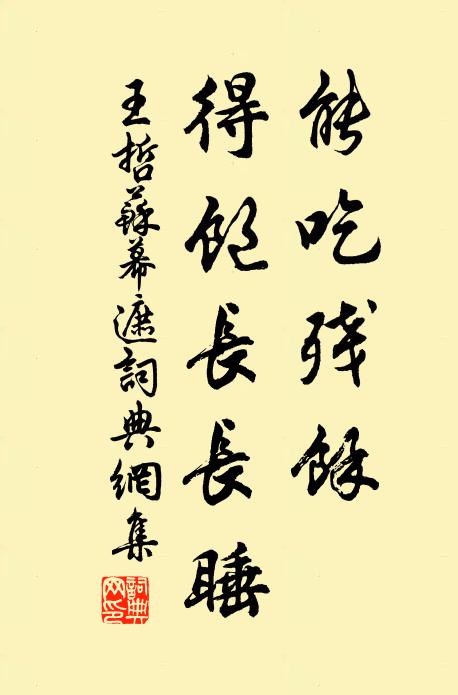 能吃残餘
得飽長長睡
王哲蘇幕遮詞典網集
詞典网印